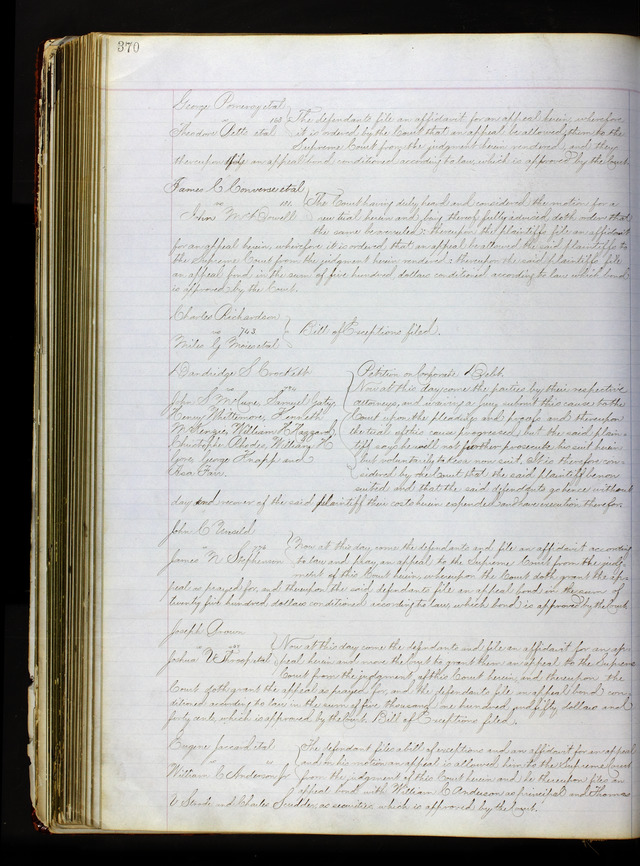 370
George Pomeroy et al
vs 133 The defendants file an affidavit for an appeal herein wherefore
Theodore Betts et al it is ordered by the Court that an appeal be allowed them to the
Supreme Court from the judgment herein rendered, and they
thereupon file an appeal bond conditioned according to law, which is approved by the Court.
James C Converse et al
vs The Court having duly heard and considered the motion for a
John McDowell new trial herein and being thereof fully advised doth order that
the same be overruled: thereupon the plaintiffs file an affidavit
for an appeal herein, wherefore it is ordered that an appeal be allowed the said plaintiffs to
the Supreme Court from the judgment herein rendered: thereupon the said plaintiffs file
an appeal bond in the sum of five hundred dollars conditioned according to law which bond
is approved by the Court.
Charles Richardson
vs 743 Bill of Exceptions filed.
Miles G Moies et al
Bandridge S Crockett Petition on Corporate Debt.
vs Now at this day come the parties by their respective
John S McCune, Samuel Gaty, attorneys, and waiving a jury submit this cause to the
Henry Whittemore, Kenneth Court upon the pleadings and proofs and thereupon
McKenzie, William H Haggard, the trial of this cause progressed, but the said plain-
Christopher Rhodes, William H tiff says he will not further prosecute his suit herein
George Knapp and but voluntarily takes a non suit. It is therefore con-
Asa Farr. sidered by the Court that the said plaintiff be non
suited and that the said defendants go hence without
day and recover of the said plaintiff their costs herein expended and have execution therefor.
John C
vs 776 Now at this day come the defendants and file an affidavit according
James N Stephenson to law and pray an appeal to the Supreme Court from the judg-
ment of this Court herein whereupon the Court doth grant the ap-
peal as prayed for, and thereupon the said defendants file an appeal bond in the sum of
twenty five hundred dollars conditioned according to law, which bond is approved by the Court
Joseph Brown
vs Now at this day come the defendants and file an affidavit for an ap-
Joshua et al peal herein and move the Court to grant them an appeal to the Supreme
Court from the judgment of this Court herein, and thereupon the
Court doth grant the appeal as prayed for, and the defendants file an appeal bond con-
ditioned according to law in the sum of five thousand one hundred and fifty dollars and
forty cents, which is approved by the Court. Bill of Exceptions filed.
Eugene Jaccard et al The defendant files a bill of exceptions and an affidavit for an appeal
vs and on his motion an appeal is allowed him to the Supreme Court
William C Anderson Jr from the judgment of this Court herein and he thereupon files an
appeal bond with William C Anderson as principal and Thomas
and Charles Scudder as securities which is approved by the Court.